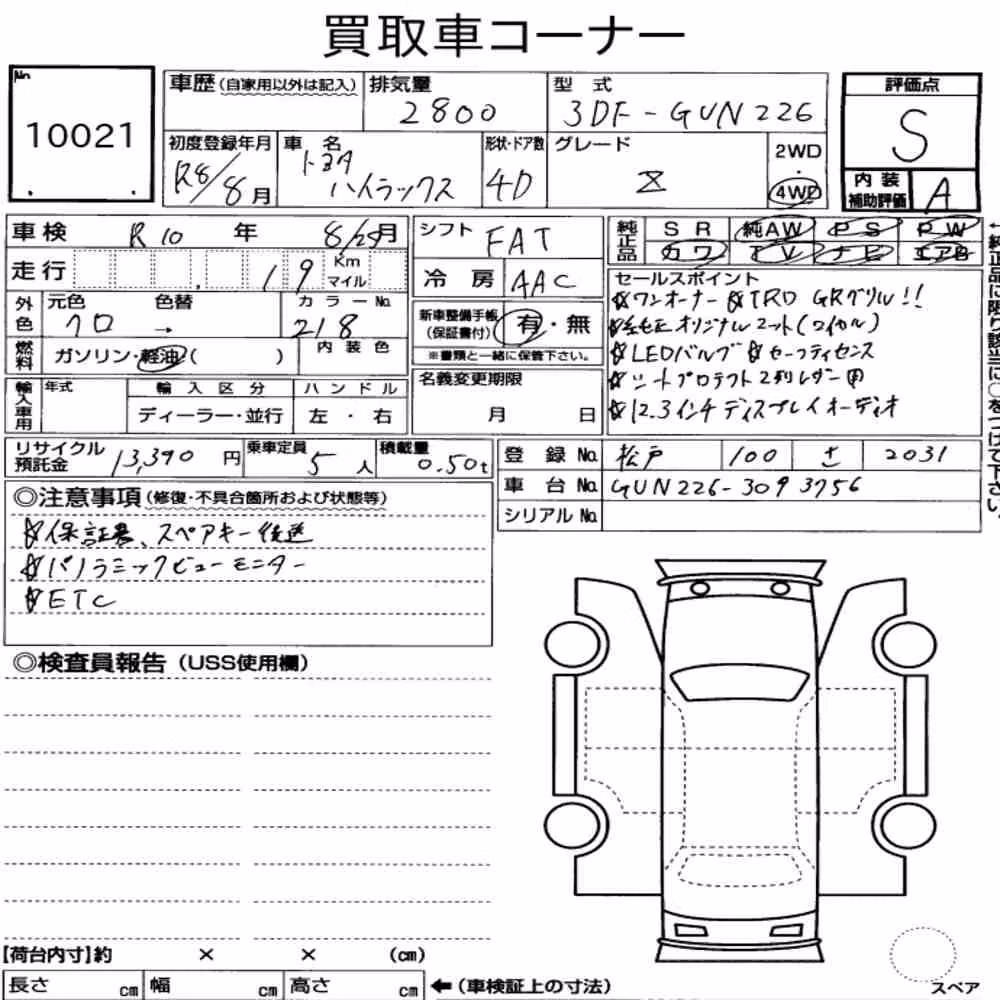 買取車コーナー
No.
10021
車歴 (自家用以外は記入)
排気量
2800
型式
3DF-GUN226
評価点
S
初度登録年月
R8/8月
車名
トヨタ
ハイラックス
形状・ドア数
4D
グレード
Z
2WD
・
4WD
内装
補助評価
A
車検 R10 年 8/25月
シフト FAT
純正品
SR 純AW PS PW
カワ TV ナビ エアB
走行 19 Km マイル
冷房 AAC
セールスポイント
☆ワンオーナー ☆TRD GRグリル!!
☆純正オリジナルマット(ロイヤル)
☆LEDバルブ ☆セーフティセンス
☆シートプロテクト2列レザー用
☆12.3インチディスプレイオーディオ
←純正品に限り該当に○をつけて下さい。
外色
元色 色替 カラーNo.
クロ → 218
新車整備手帳
(保証書付)
有・無
※書類と一緒に保管下さい。
燃料
ガソリン・軽油( )
内装色
名義変更期限
月 日
輸入車用
年式
輸入区分
ハンドル
ディーラー・並行
左・右
リサイクル
預託金
13,390円
乗車定員
5人
積載量
0.50t
登録No. 松戸 100 さ 2031
車台No. GUN226-3093756
シリアルNo.
◎注意事項(修復・不具合箇所および状態等)
☆保証書、スペアキー後送
☆パノラミックビューモニター
☆ETC
◎検査員報告(USS使用欄)
【荷台内寸】約 × × (cm)
長さ cm 幅 cm 高さ cm ←(車検証上の寸法)
スペア